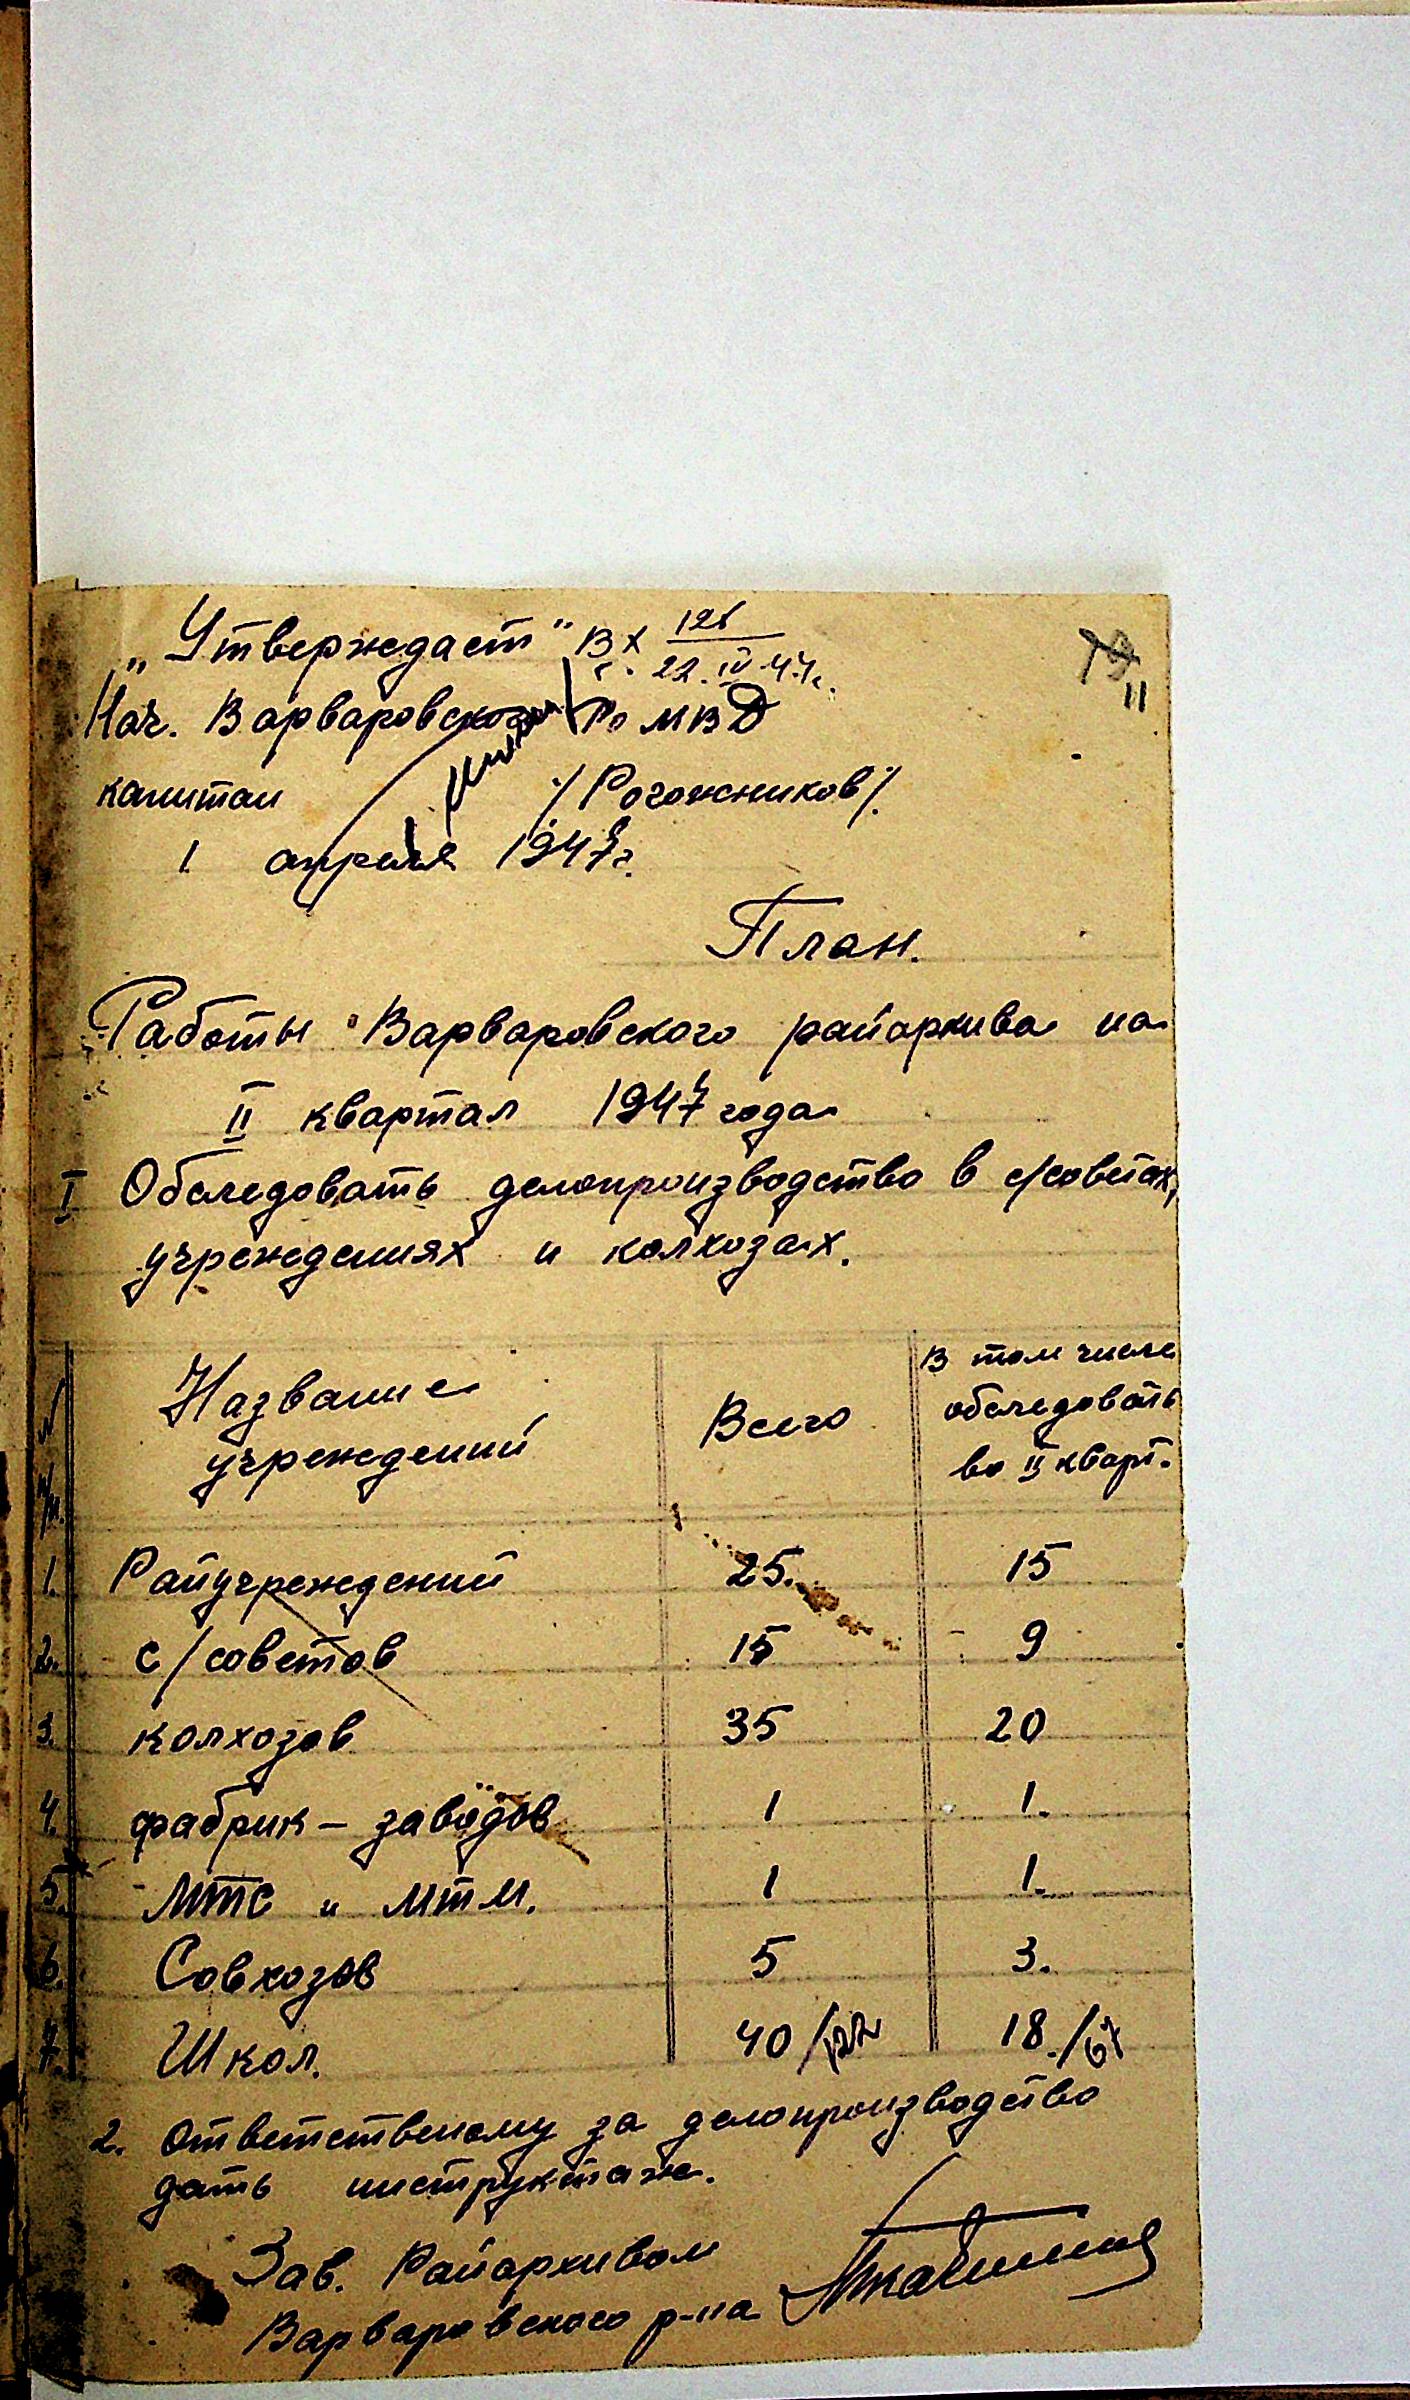 „Утверждаст" Вх 126
22.IV.47г.
11
Нач. Варваровского Ро МВД
капитан /Рогожников/.
1 апреля 1947г.
План.
Работы Варваровского райархива на
II квартал 1947 года
I Обследовать делопроизводство в с/советах,
учреждениях и колхозах.
№ Название Всего В том числе
п/п. учреждений обследовать
во II кварт.
1. Райучреждений 25. 15
2. с/советов 15 9
3. колхозов 35 20
4. фабрик – заводов 1 1.
5. МТС и МТМ. 1 1.
6. Совхозов 5 3.
7. Школ. 40/122 18./67
2. Ответственому за делопроизводство
дать инструктаж.
Зав. Райархивом
Варваровского р-на